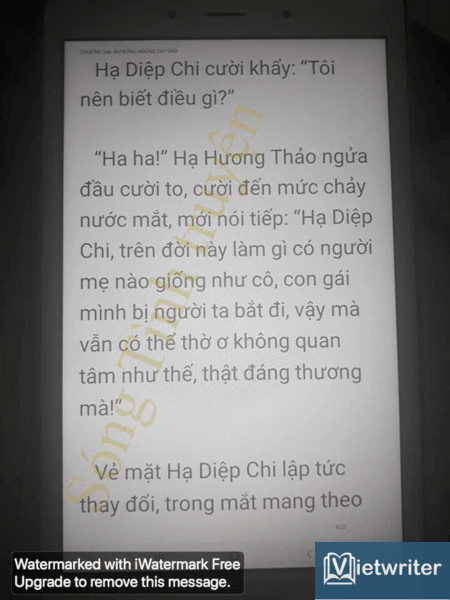 CHƯƠNG 134: EM ĐỪNG NHÚNG TAY VÀO
Hạ Diệp Chi cười khẩy: “Tôi
nên biết điều gì?”
“Ha ha!” Hạ Hương Thảo ngửa
đầu cười to, cười đến mức chảy
nước mắt, mới nói tiếp: “Hạ Diệp
Chi, trên đời này làm gì có người
mẹ nào giống như cô, con gái
mình bị người ta bắt đi, vậy mà
vẫn có thể thờ ơ không quan
tâm như thế, thật đáng thương
mà!”
Vẻ mặt Hạ Diệp Chi lập tức
thay đổi, trong mắt mang theo
Sóng Tình truyện
Watermarked with iWatermark Free
Upgrade to remove this message.
Vietwriter